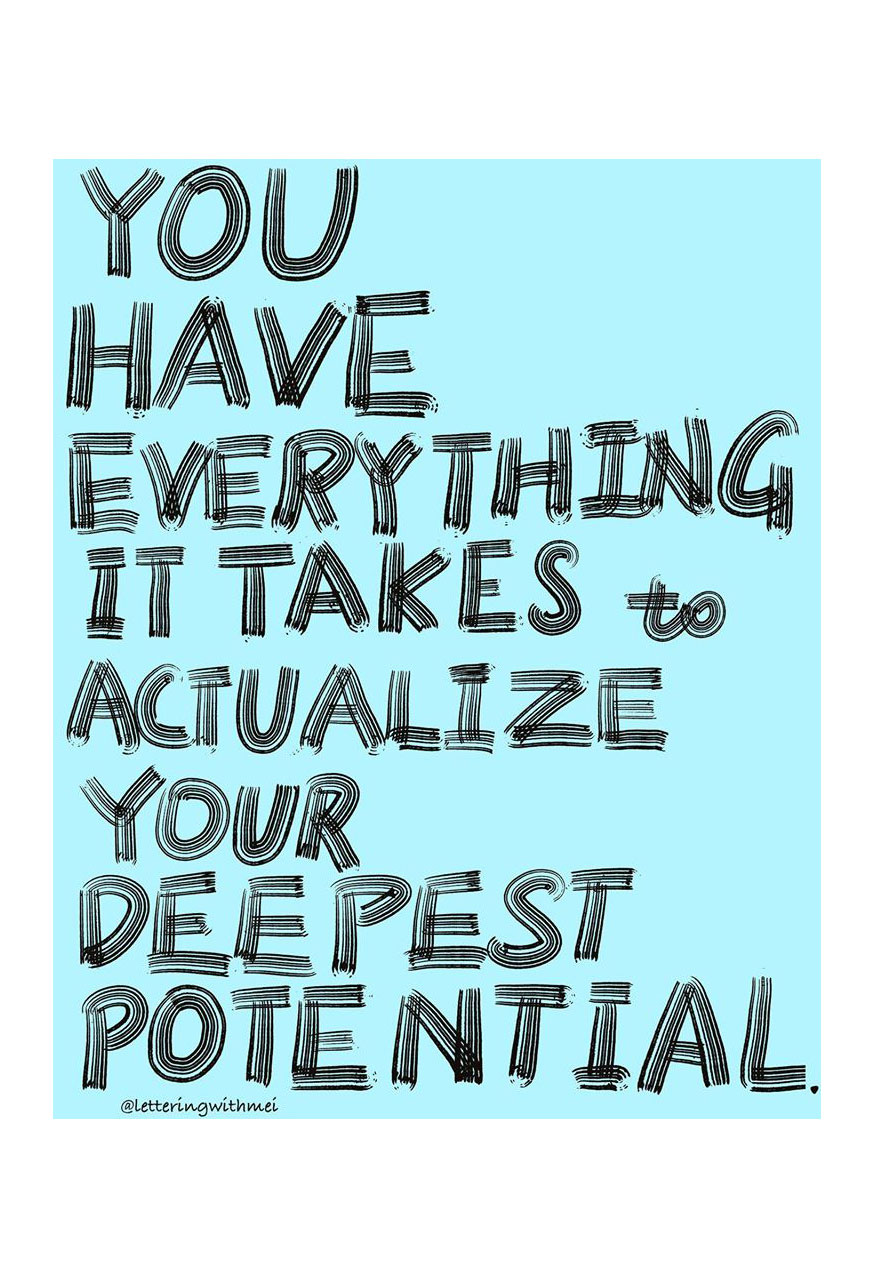 YOU
HAVE
EVERYTHING
IT TAKES to
ACTUALIZE
YOUR
DEEPEST
POTENTIAL.
@letteringwithmei